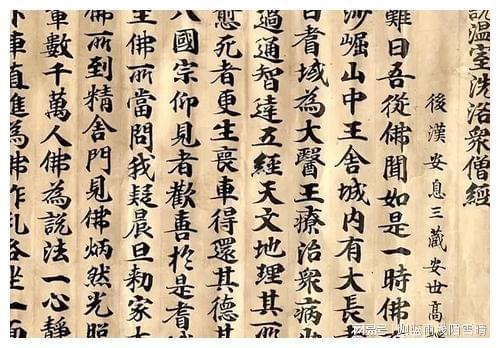 說溫室洗浴眾僧經
後漢安息三藏安世高
難曰吾從佛聞如是一時佛
崛山中王舍城內有大長者
曰耆域為大醫王療治眾病
過通智達五經天文地理其所
愈死者更生喪車得還其德其
八國宗仰見者歡喜於是耆
佛所當問我疑晨旦勑家大
佛所到精舍門見佛炳然光照
數千萬人佛為說法一心靜
車直進為佛作礼各坐一